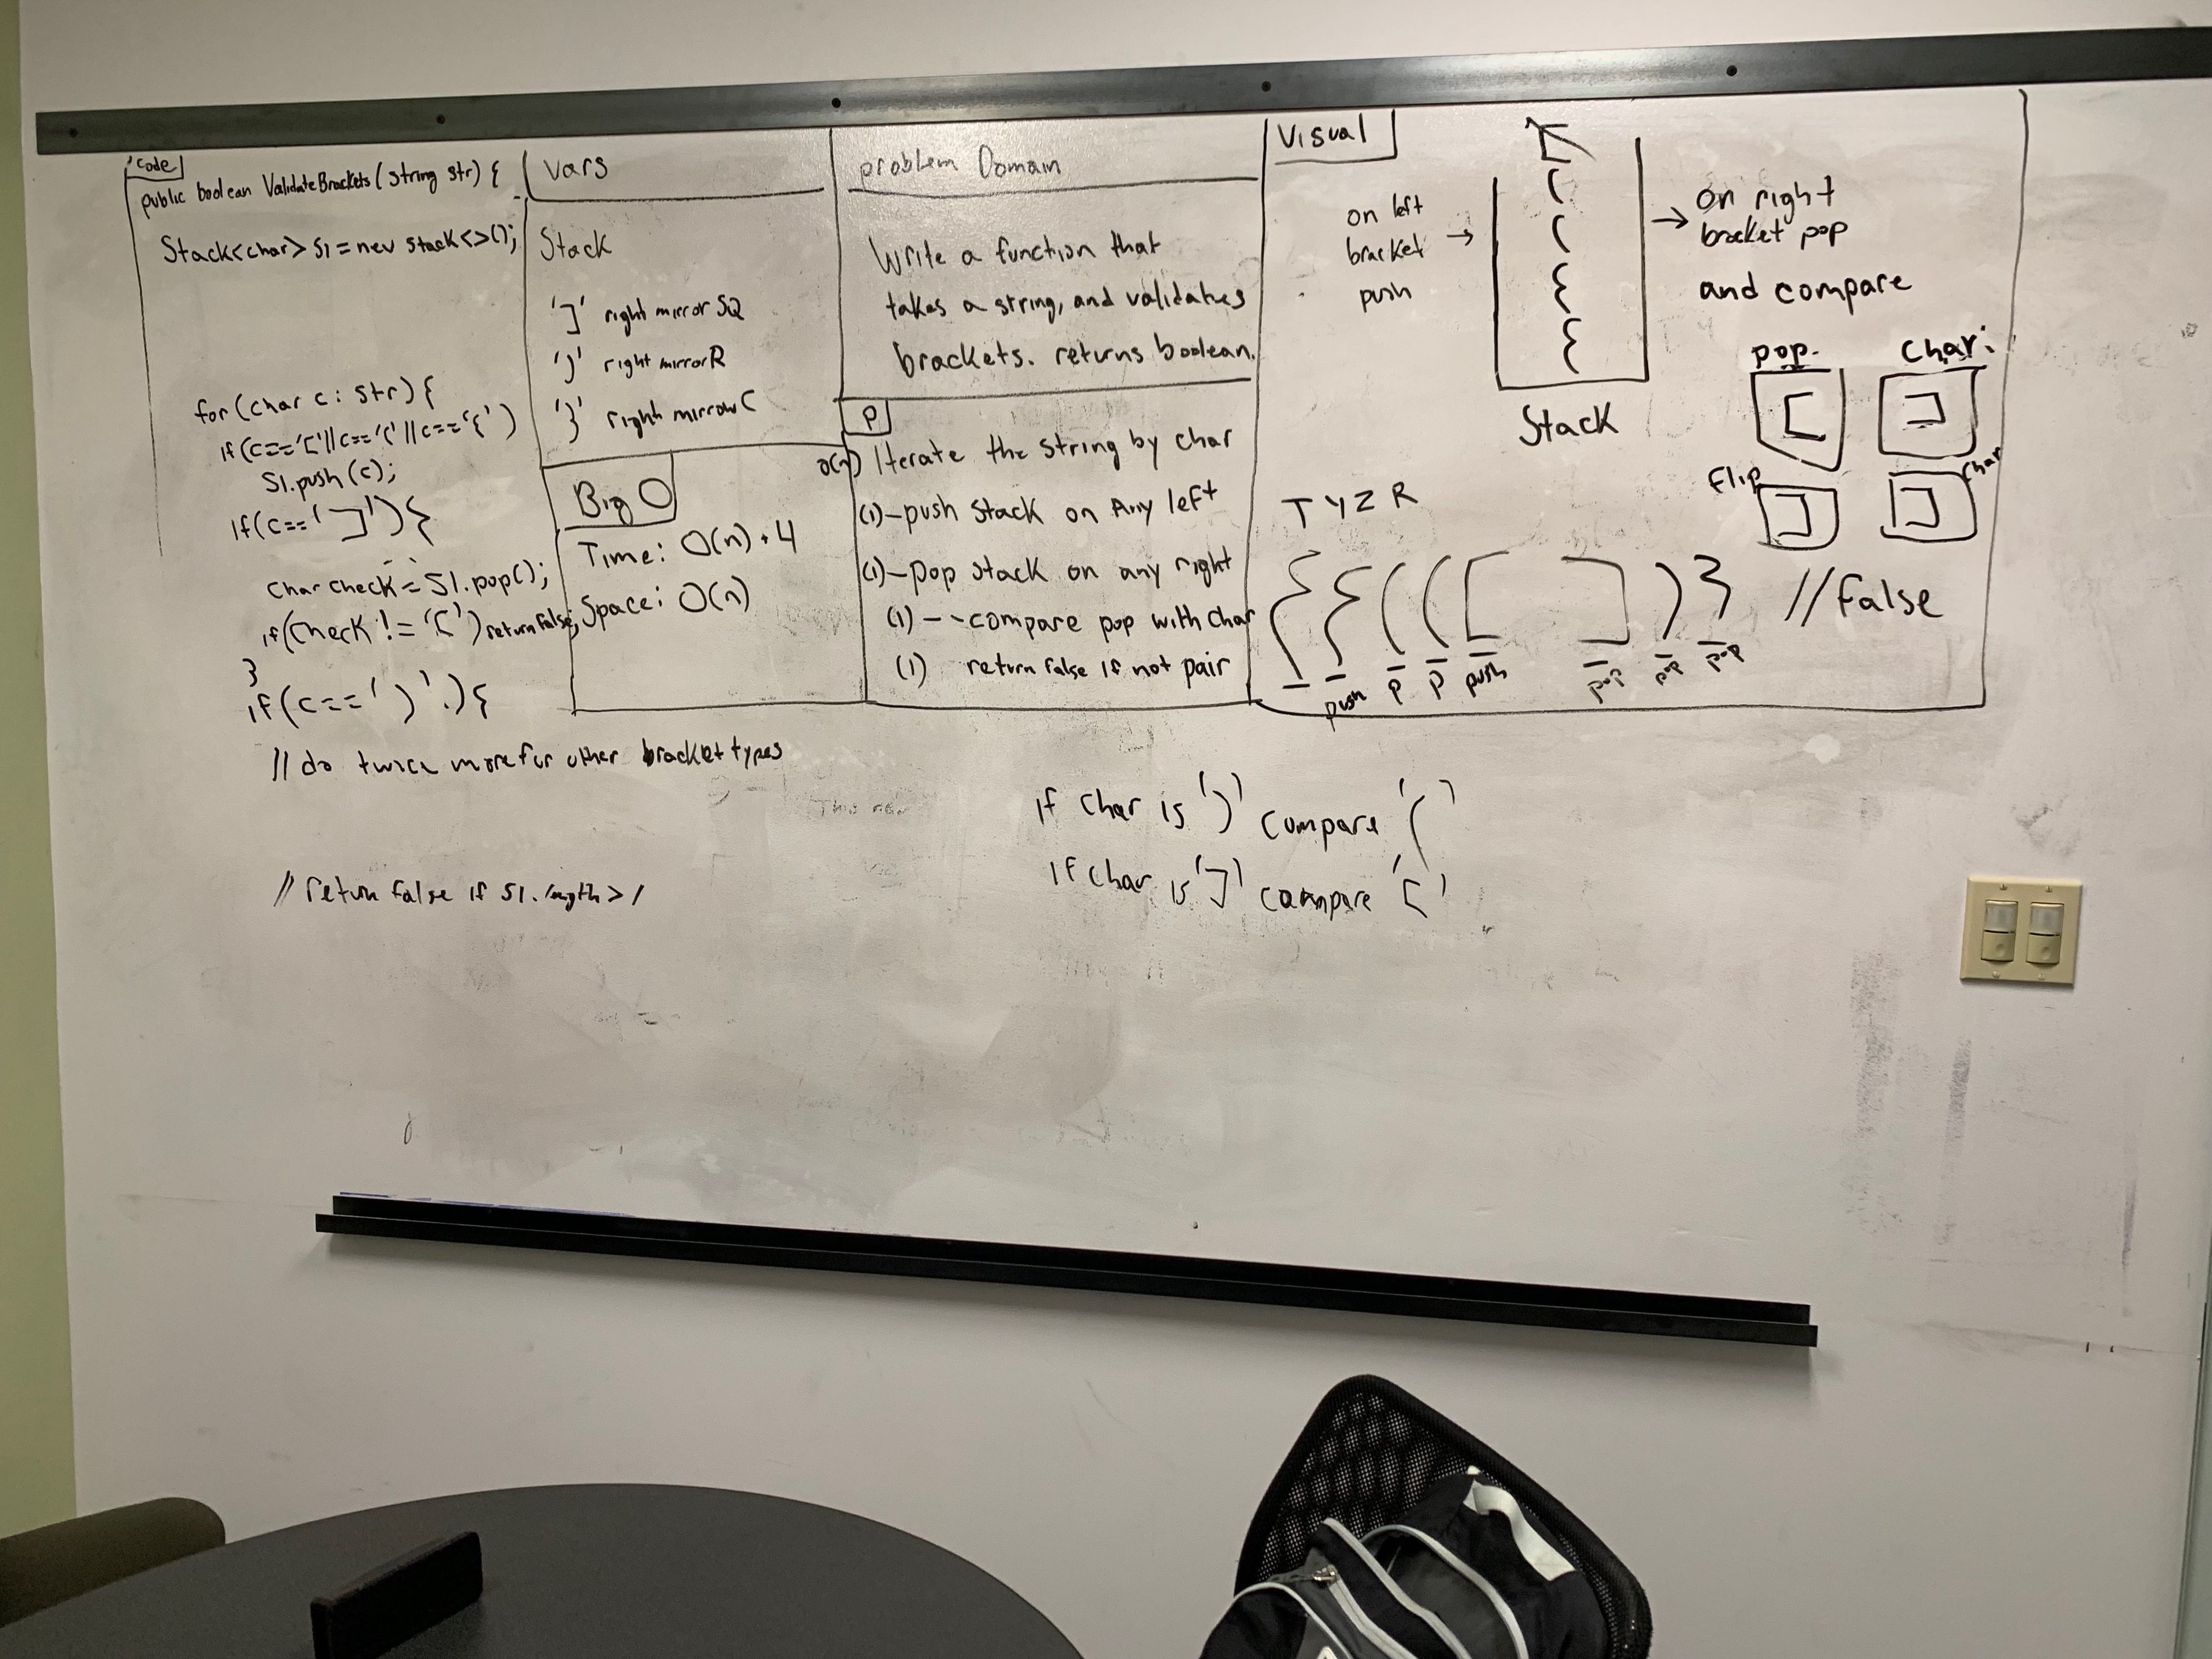 code
public boolean ValidateBrackets(string str) {
Stack<char> S1 = new stack<>();
for (char c : str) {
if(c=='['||c=='('||c=='{')
S1.push(c);
if(c==']'){
char check = S1.pop();
if(check != '[') return false;
}
if(c==')'.){
// do twice more for other bracket types
// return false if S1.length > 1
Vars
Stack
']' right mirror SQ
')' right mirror R
'}' right mirrow C
Big O
Time: O(n) • 4
Space: O(n)
problem Domain
Write a function that
takes a string, and validates
brackets. returns boolean.
P
O(n) Iterate the string by char
(1) - push Stack on Any left
(1) - pop stack on any right
(1) - - compare pop with char
(1) return false if not pair
Visual
on left
bracket →
push
[
(
(
{
{
Stack
→ on right
bracket pop
and compare
pop. char:
[ ]
Flip char
] ]
T Y Z R
{ { ( ( [ ] ) } // false
push P P push pop pop pop
If char is ')' compare '('
If char is ']' compare '['